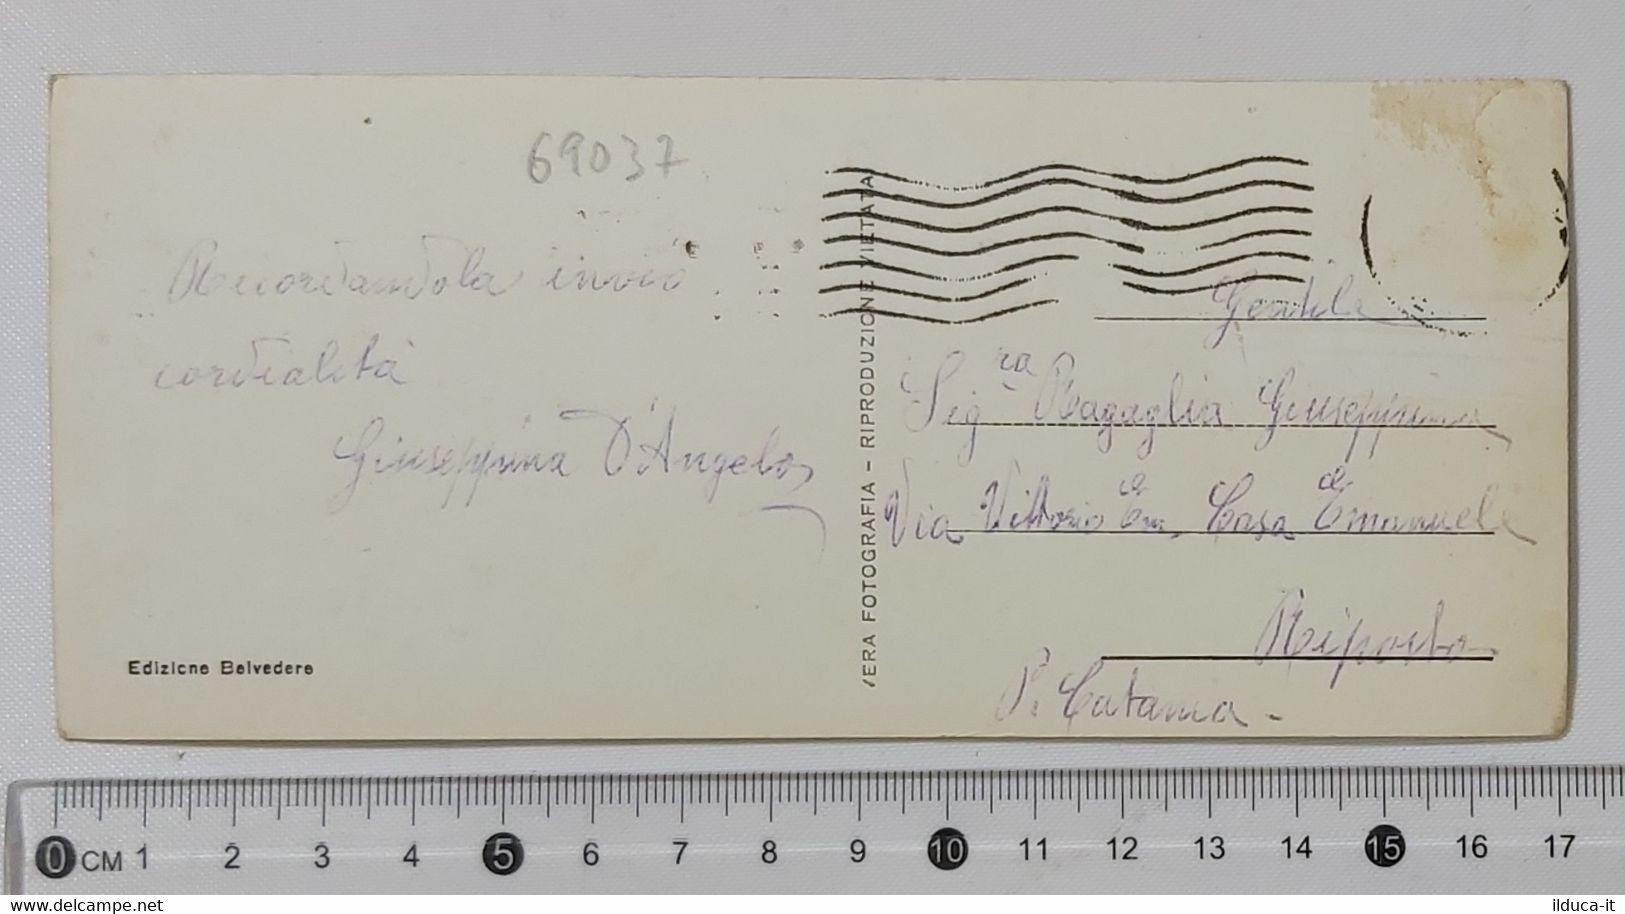 69037
Ricordandola invio
cordialità
Giuseppina D'Angelo
Edizione Belvedere
VERA FOTOGRAFIA - RIPRODUZIONE VIETATA
Gentile
Sig.ra Ragaglia Giuseppina
Via Vittorio Em.le Casa Emanuele
Riposto
P. Catania -
0 CM 1 2 3 4 5 6 7 8 9 10 11 12 13 14 15 16 17
www.delcampe.net
ilduca-it